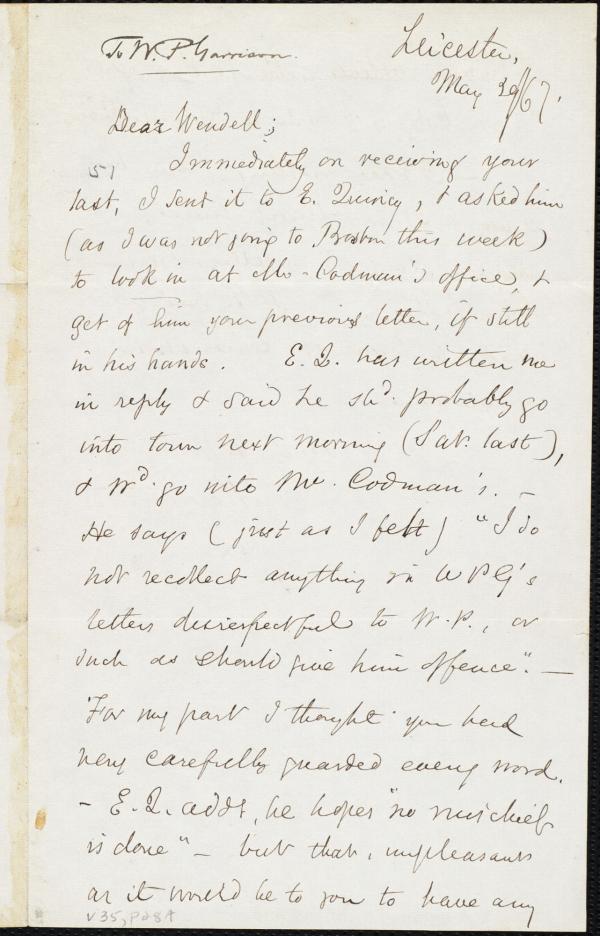 To W. P. Garrison.
Leicester,
May 29/67.
Dear Wendell;
51
Immediately on receiving your
last, I sent it to E. Quincy, & asked him
(as I was not going to Boston this week)
to look in at Mr. Codman's office, &
get of him your previous letter, if still
in his hands. E. Q. has written me
in reply & said he shd. probably go
into town next morning (Sat. last),
& wd. go into Mr. Codman's. —
He says (just as I felt) "I do
not recollect anything in WPG's
letters disrespectful to W. P., or
such as should give him offence". —
For my part I thought you had
very carefully guarded every word.
- E. Q. adds, he hopes "no mischief
is done" - but that, unpleasant
as it would be to you to have any
v35, p28A